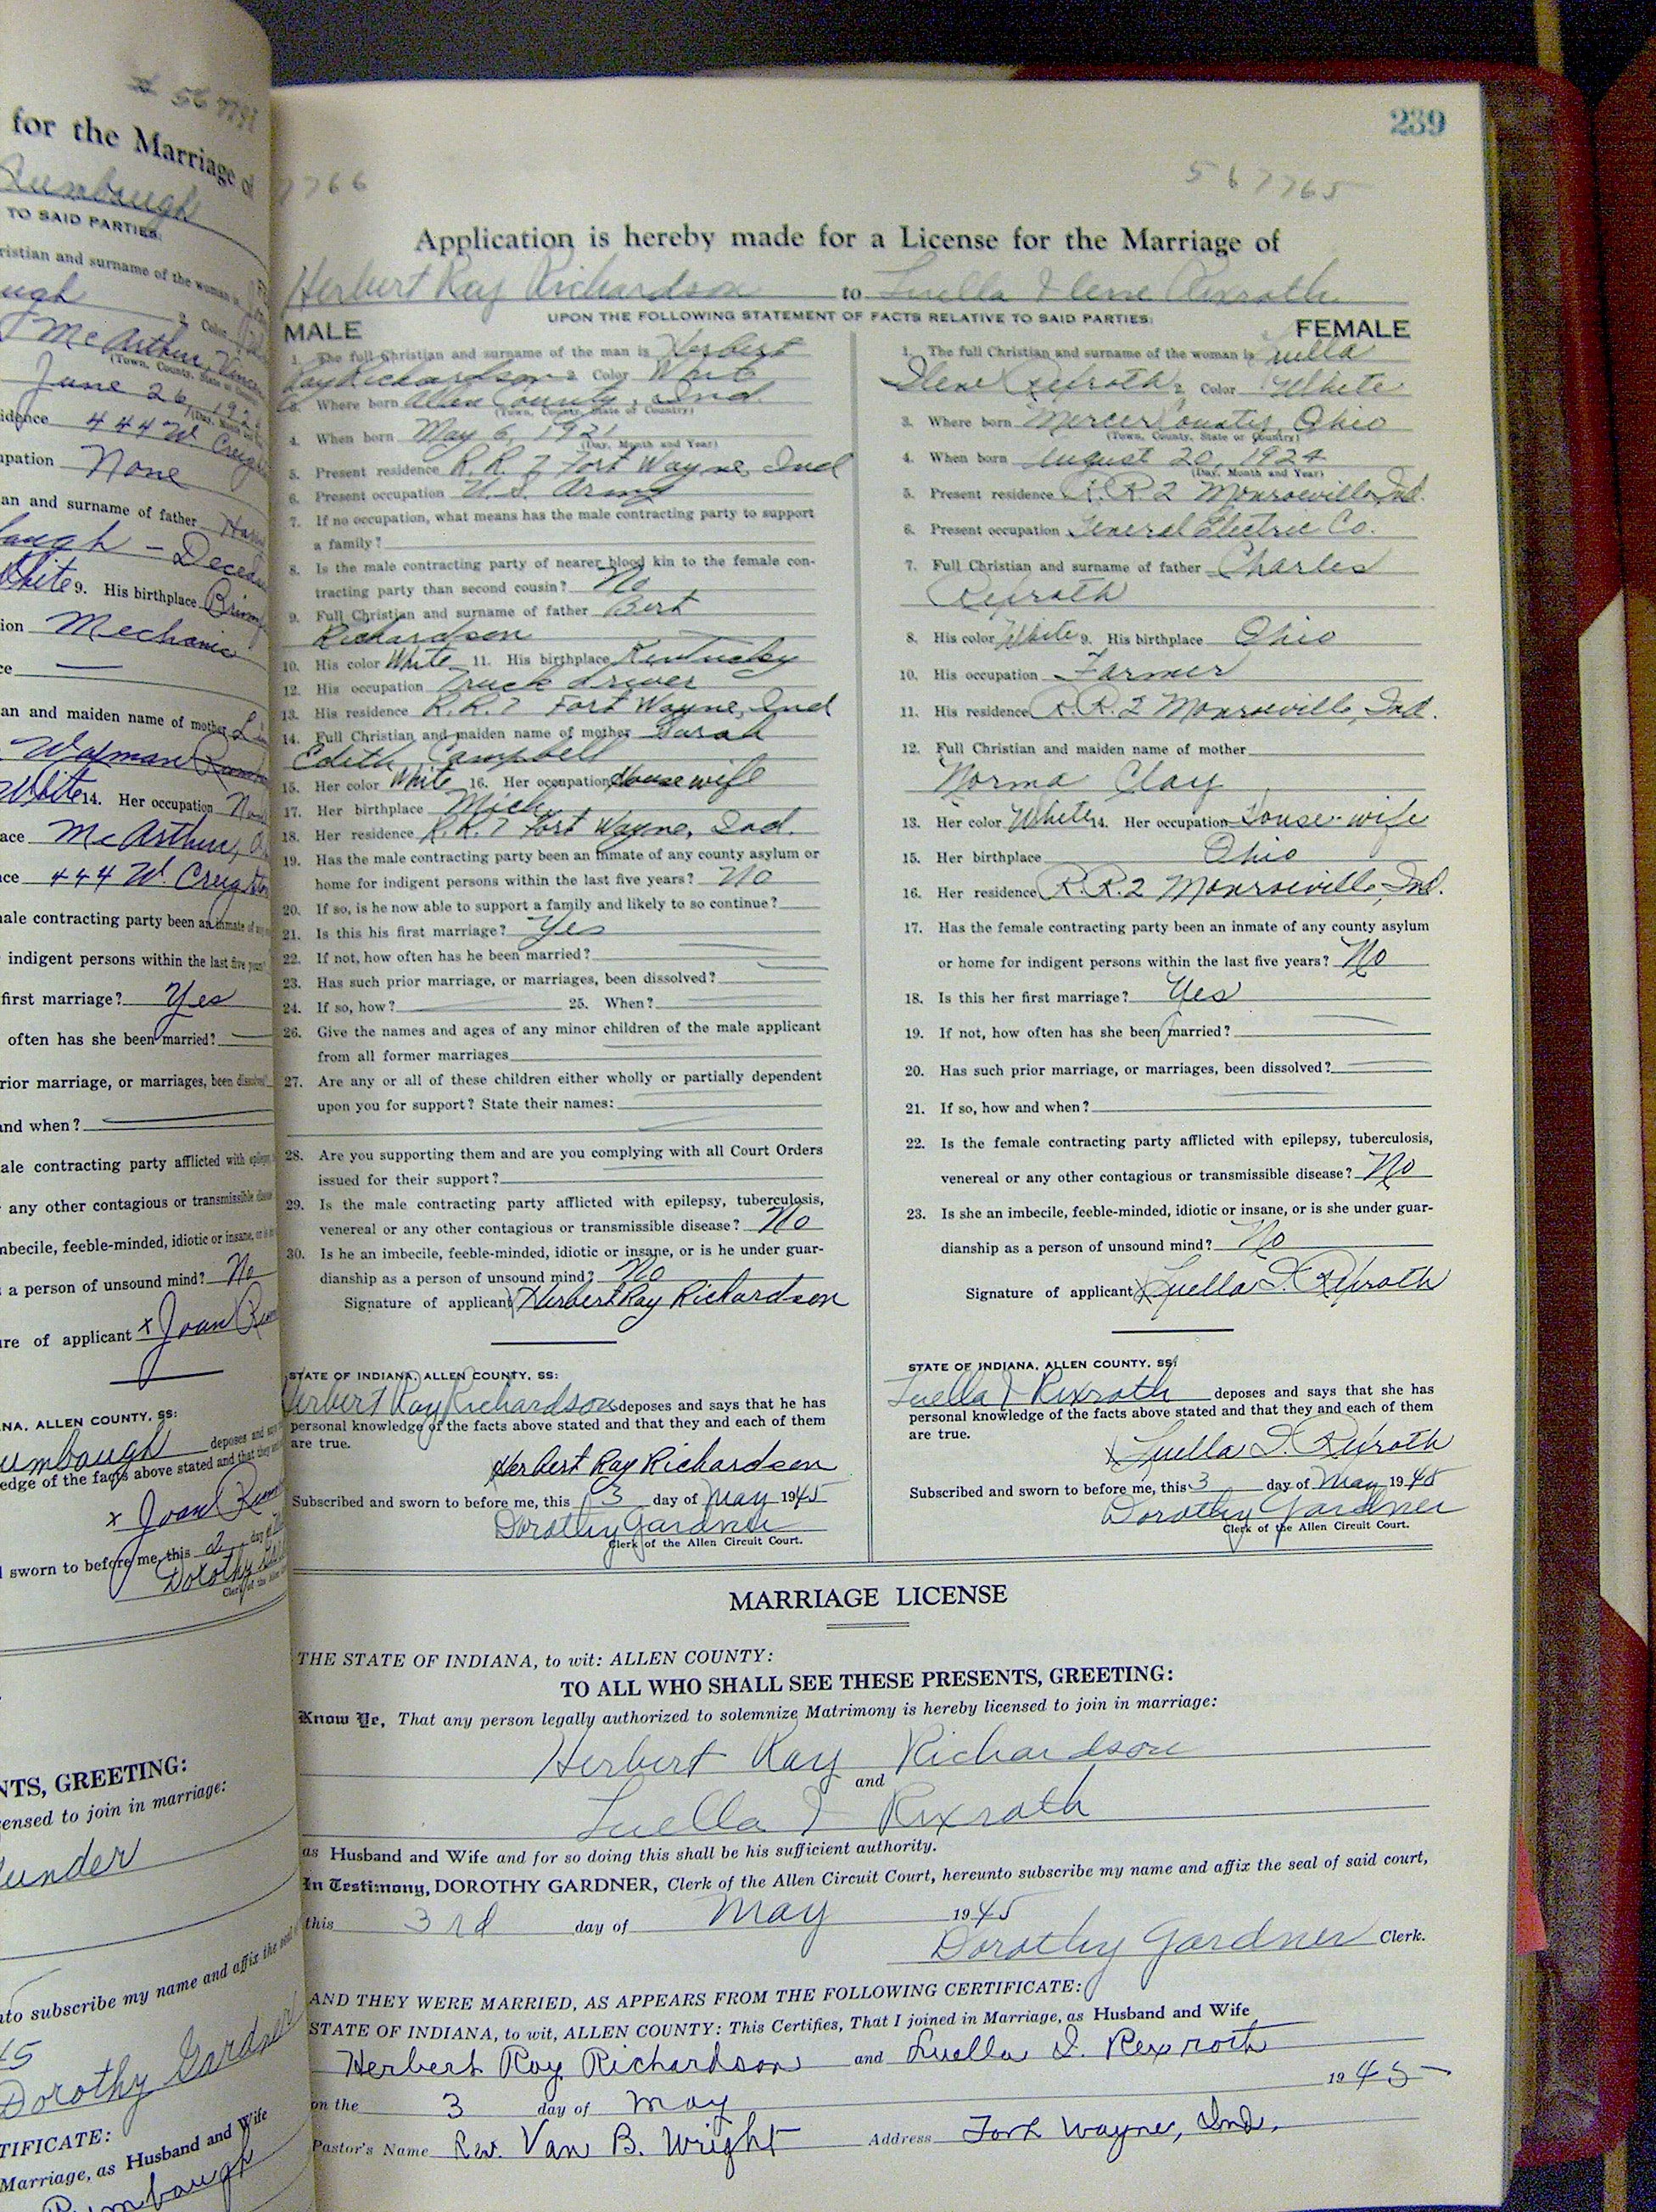 for the Marriage of
TO SAID PARTIES:
June 26, 192
444 W.
None
Mechanic
first marriage? Yes
239
567765
Application is hereby made for a License for the Marriage of
Herbert Ray Richardson to Luella Ilene Rexroth
UPON THE FOLLOWING STATEMENT OF FACTS RELATIVE TO SAID PARTIES:
MALE
1. The full Christian and surname of the man is Herbert
Ray Richardson 2. Color White
3. Where born Allen County, Ind.
(Town, County, State or Country)
4. When born May 6, 1921
(Day, Month and Year)
5. Present residence R.R. 7 Fort Wayne, Ind
6. Present occupation U.S. Army
7. If no occupation, what means has the male contracting party to support
a family?
8. Is the male contracting party of nearer blood kin to the female con-
tracting party than second cousin? No
9. Full Christian and surname of father Bert
Richardson
10. His color White 11. His birthplace Kentucky
12. His occupation Truck driver
13. His residence R.R. 7 Fort Wayne, Ind
14. Full Christian and maiden name of mother Sarah
Edith Campbell
15. Her color White 16. Her occupation Housewife
17. Her birthplace Mich.
18. Her residence R.R. 7 Fort Wayne, Ind.
19. Has the male contracting party been an inmate of any county asylum or
home for indigent persons within the last five years? No
20. If so, is he now able to support a family and likely to so continue?
21. Is this his first marriage? Yes
22. If not, how often has he been married?
23. Has such prior marriage, or marriages, been dissolved?
24. If so, how? 25. When?
26. Give the names and ages of any minor children of the male applicant
from all former marriages
27. Are any or all of these children either wholly or partially dependent
upon you for support? State their names:
28. Are you supporting them and are you complying with all Court Orders
issued for their support?
29. Is the male contracting party afflicted with epilepsy, tuberculosis,
venereal or any other contagious or transmissible disease? No
30. Is he an imbecile, feeble-minded, idiotic or insane, or is he under guar-
dianship as a person of unsound mind? No
Signature of applicant Herbert Ray Richardson
STATE OF INDIANA, ALLEN COUNTY, SS:
Herbert Ray Richardson deposes and says that he has
personal knowledge of the facts above stated and that they and each of them
are true.
Herbert Ray Richardson
Subscribed and sworn to before me, this 3 day of May 1945
Dorothy Gardner
Clerk of the Allen Circuit Court.
FEMALE
1. The full Christian and surname of the woman is Luella
Ilene Rexroth 2. Color White
3. Where born Mercer County, Ohio
(Town, County, State or Country)
4. When born August 20, 1924
(Day, Month and Year)
5. Present residence R.R. 2 Monroeville, Ind.
6. Present occupation General Electric Co.
7. Full Christian and surname of father Charles
Rexroth
8. His color White 9. His birthplace Ohio
10. His occupation Farmer
11. His residence R.R. 2 Monroeville, Ind.
12. Full Christian and maiden name of mother
Norma Clay
13. Her color White 14. Her occupation House-wife
15. Her birthplace Ohio
16. Her residence R.R. 2 Monroeville, Ind.
17. Has the female contracting party been an inmate of any county asylum
or home for indigent persons within the last five years? No
18. Is this her first marriage? Yes
19. If not, how often has she been married?
20. Has such prior marriage, or marriages, been dissolved?
21. If so, how and when?
22. Is the female contracting party afflicted with epilepsy, tuberculosis,
venereal or any other contagious or transmissible disease? No
23. Is she an imbecile, feeble-minded, idiotic or insane, or is she under guar-
dianship as a person of unsound mind? No
Signature of applicant x Luella I. Rexroth
STATE OF INDIANA, ALLEN COUNTY, SS:
Luella I Rexroth deposes and says that she has
personal knowledge of the facts above stated and that they and each of them
are true.
x Luella I. Rexroth
Subscribed and sworn to before me, this 3 day of May, 1945
Dorothy Gardner
Clerk of the Allen Circuit Court.
MARRIAGE LICENSE
THE STATE OF INDIANA, to wit: ALLEN COUNTY:
TO ALL WHO SHALL SEE THESE PRESENTS, GREETING:
Know Ye, That any person legally authorized to solemnize Matrimony is hereby licensed to join in marriage:
Herbert Ray Richardson
and
Luella I Rexroth
as Husband and Wife and for so doing this shall be his sufficient authority.
In Testimony, DOROTHY GARDNER, Clerk of the Allen Circuit Court, hereunto subscribe my name and affix the seal of said court,
this 3rd day of May 1945
Dorothy Gardner Clerk.
AND THEY WERE MARRIED, AS APPEARS FROM THE FOLLOWING CERTIFICATE:
STATE OF INDIANA, to wit, ALLEN COUNTY: This Certifies, That I joined in Marriage, as Husband and Wife
Herbert Ray Richardson and Luella I. Rexroth
on the 3 day of May 1945
Pastor's Name Rev. Van B. Wright Address Fort Wayne, Ind.